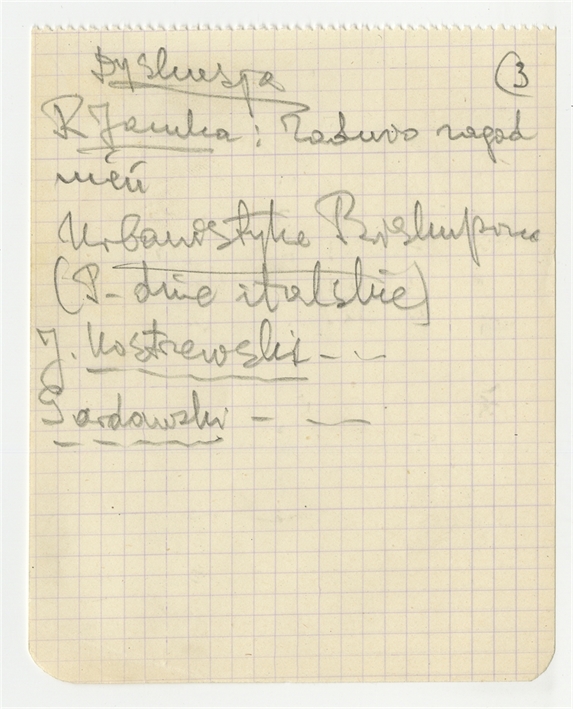 Dyskusja
3
R Jamka: zagad
nień
Urbanistyka Biskupina
(P- dnie italskie)
J. Kostrzewski - -
Gardawski - -